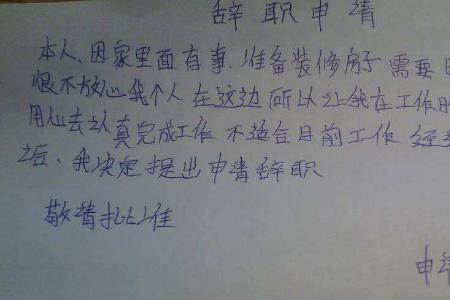 辞职申请
本人、因家里面有事、准备装修房子需要
很不放心我个人在这边所以让我在工作
用心去认真完成工作不适合目前工作经
之后、我决定提出申请辞职
敬请批准
申请